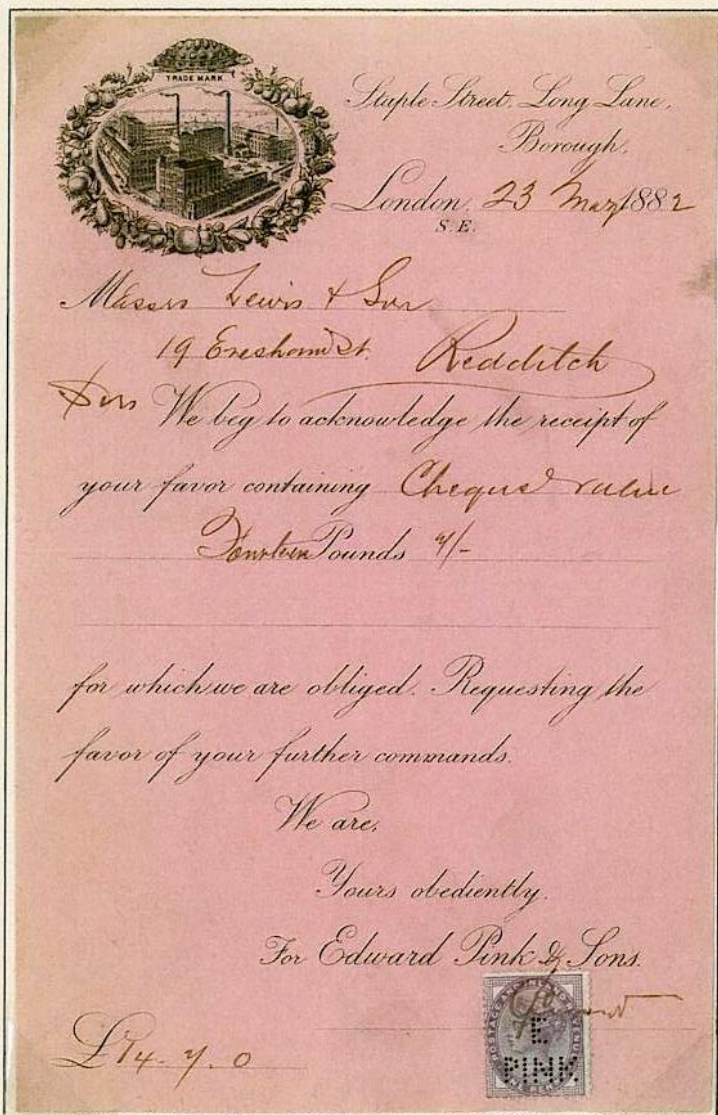 TRADE MARK
Staple Street, Long Lane,
Borough,
London, 23 May 1882
S.E.
Messrs Lewis & Son
19 Evesham St. Redditch
Sirs We beg to acknowledge the receipt of
your favor containing Cheque value
Fourteen Pounds
for which we are obliged. Requesting the
favor of your further commands.
We are,
Yours obediently.
For Edward Pink & Sons.
POSTAGE AND INLAND REVENUE
E
PINK.
£14.